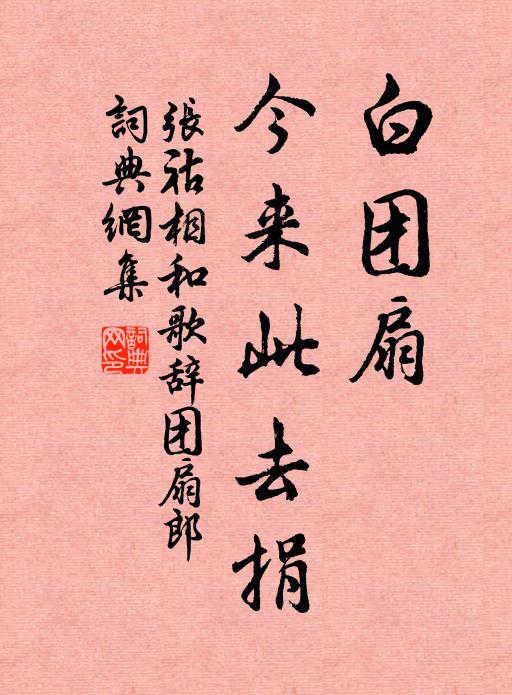 白团扇
今来此去捐
張祜相和歌辞团扇郎
詞典網集
詞典网印